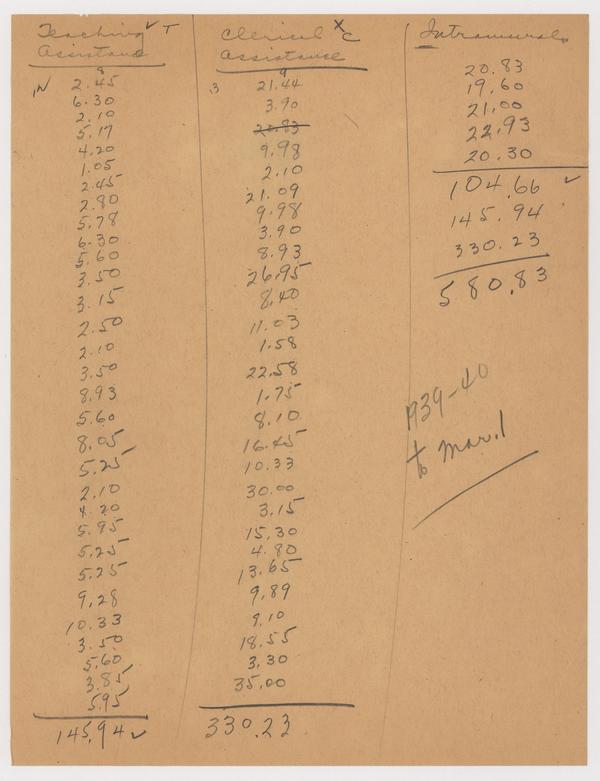 Teaching ✓ T
Assistance
2.45
6.30
2.10
5.17
4.20
1.05
2.45
2.80
5.78
6.30
5.60
3.50
3.15
2.50
2.10
3.50
8.93
5.60
8.05
5.25
2.10
4.20
5.95
5.25
5.25
9.28
10.33
3.50
5.60
3.85
5.95
145.94 ✓
Clerical x C
Assistance
21.44
3.90
20.83
9.98
2.10
21.09
9.98
3.90
8.93
26.95
8.40
11.03
1.58
22.58
1.75
8.10
16.45
10.33
30.00
3.15
15.30
4.80
13.65
9.89
9.10
18.55
3.30
35.00
330.23
Intramurals
20.83
19.60
21.00
22.93
20.30
104.66 ✓
145.94
330.23
580.83
1939-40
to Mar. 1